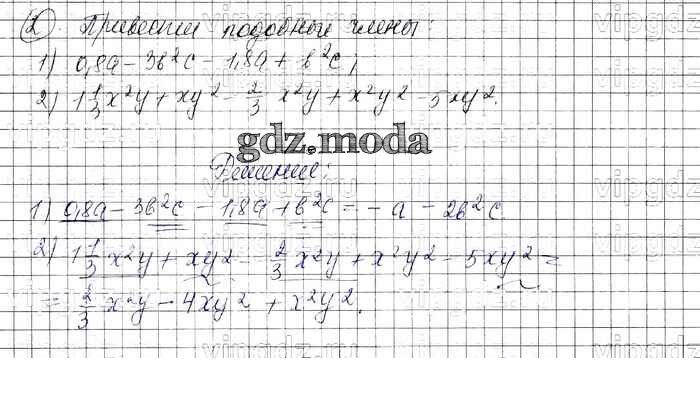 2. Привести подобные члены:
1) 0,8a - 3b²c - 1,8a + b²c;
2) 1 1/3 x²y + xy² - 2/3 x²y + x²y² - 5xy².
gdz.moda
Решение:
1) 0,8a - 3b²c - 1,8a + b²c = -a - 2b²c.
2) 1 1/3 x²y + xy² - 2/3 x²y + x²y² - 5xy² =
= 2/3 x²y - 4xy² + x²y².